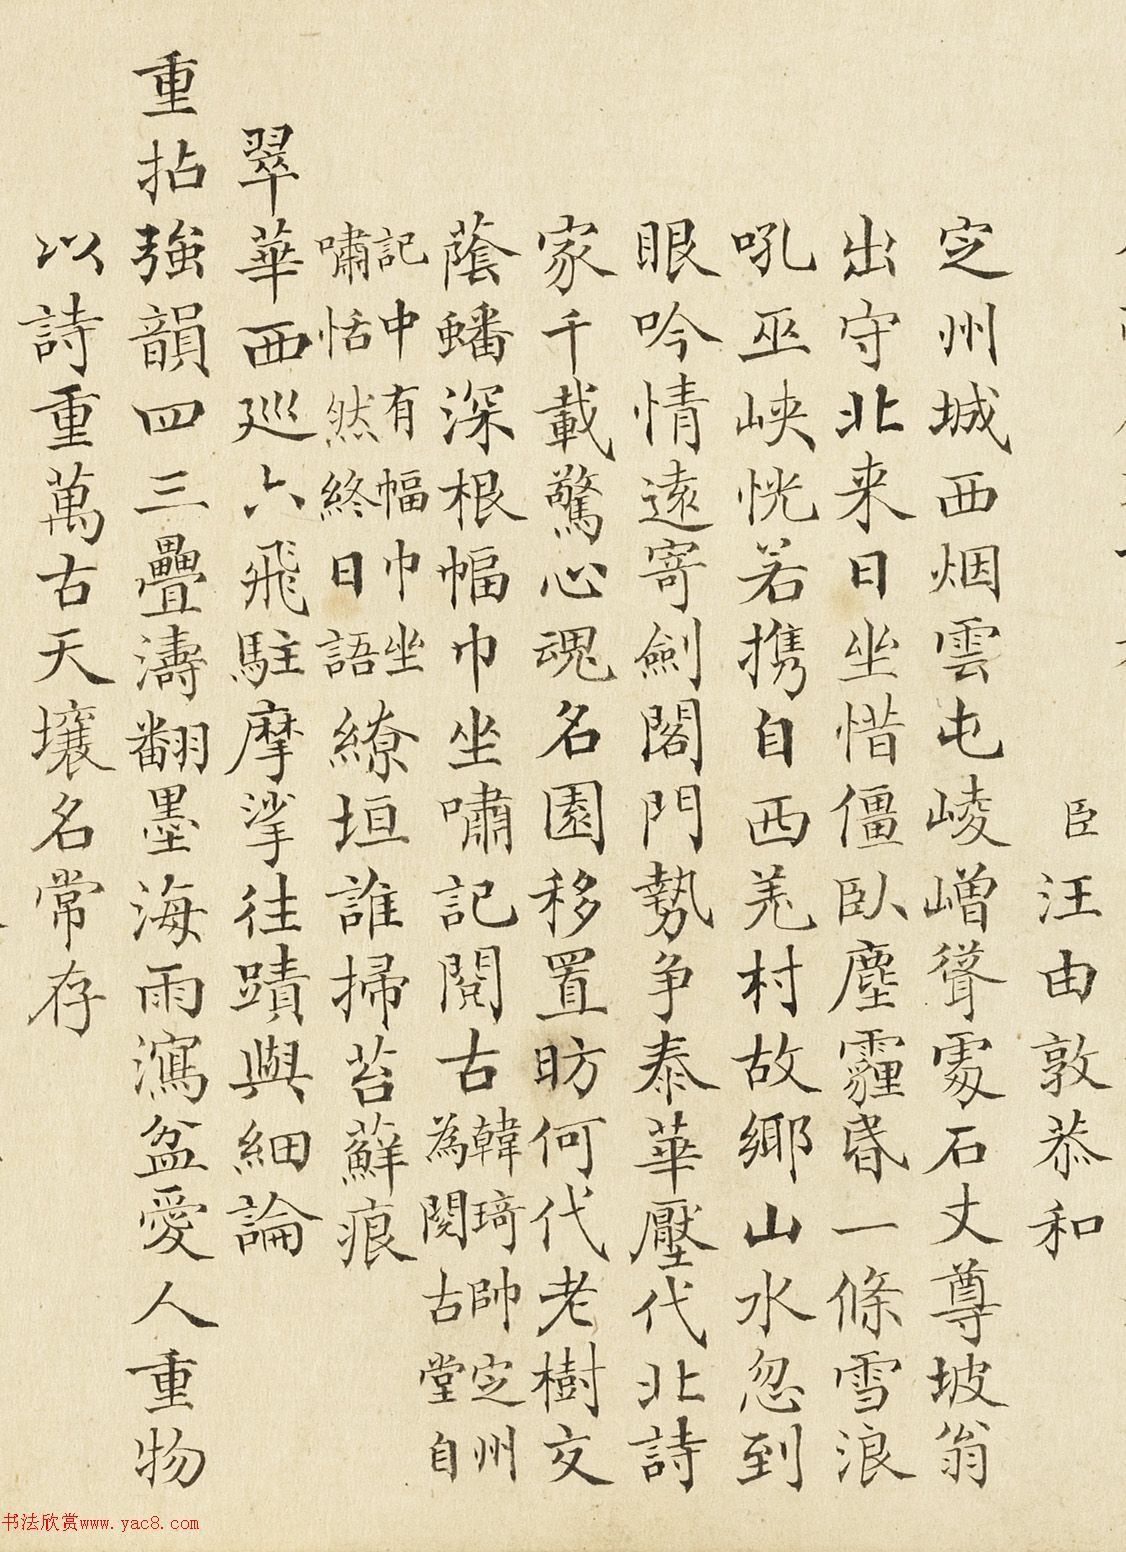 臣汪由敦恭和
定州城西烟雲屯崚嶒聳處石丈尊坡翁
出守北来日坐惜僵臥塵霾昏一條雪浪
吼巫峽恍若携自西羌村故鄉山水忽到
眼吟情遠寄劍閣門勢争泰華壓代北詩
家千載驚心魂名園移置昉何代老樹交
蔭蟠深根幅巾坐嘯記閱古韓琦帥定州
為閱古堂自
記中有幅巾坐
嘯恬然終日語繚垣誰掃苔蘚痕
翠華西巡六飛駐摩挲往蹟與細論
重拈強韻四三疊濤翻墨海雨瀉盆愛人重物
以詩重萬古天壤名常存
书法欣赏www.yac8.com